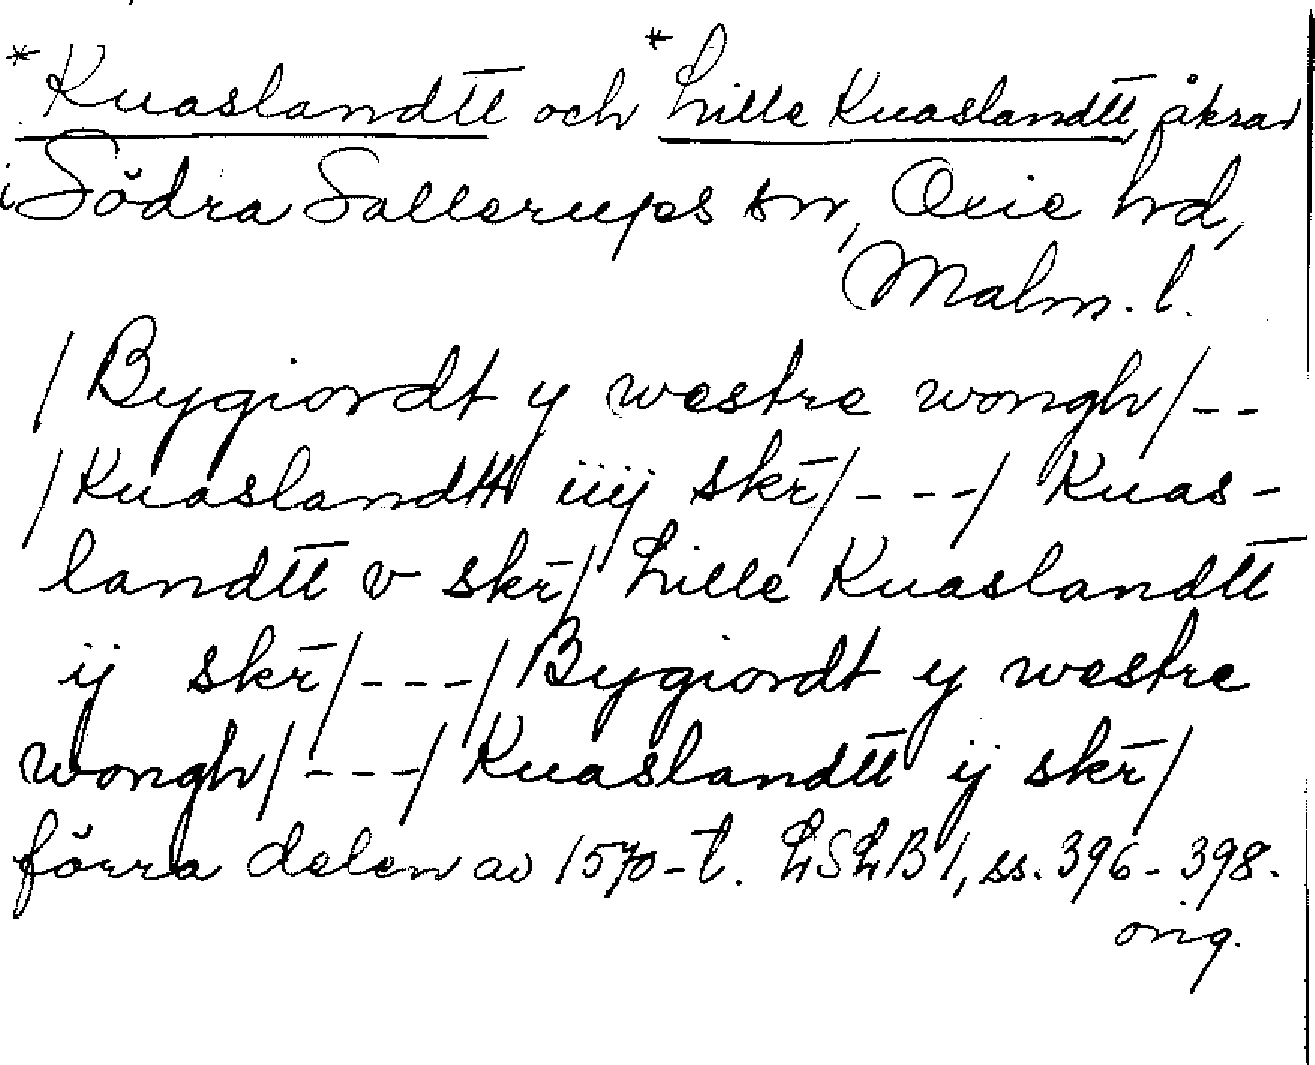 *Kuaslandtt̅ och *Lille Kuaslandtt̅, åkrar
i Södra Sallerups sn, Oxie hd,
Malm. l.
/Bygiordt y westre wongh/--
/Kuaslandtt iiij skr̅/---/ Kuas-
landtt̅ v skr̅/ Lille Kuaslandtt̅
ij skr̅/---/Bygiordt y westre
wongh/---/Kuaslandtt̅ ij skr̅/
förra delen av 1570-t. LSLB 1, ss. 396-398.
orig.